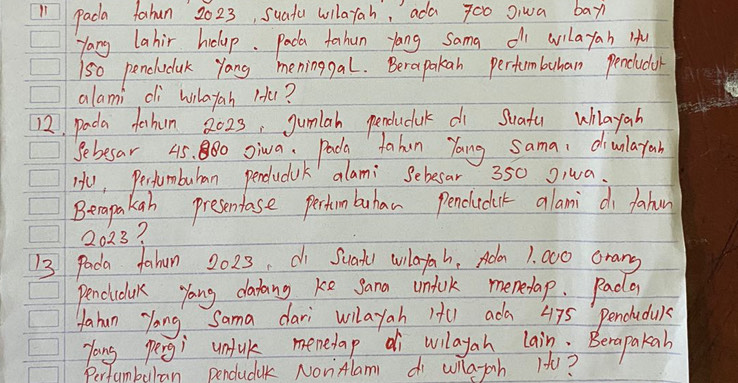 11 pada tahun 2023, suatu wilayah, ada 700 jiwa bayi
yang lahir hidup. pada tahun yang sama di wilayah itu
150 penduduk yang meninggal. Berapakah pertumbuhan penduduk
alami di wilayah itu?
12. pada tahun 2023, Jumlah penduduk di Suatu wilayah
Sebesar 45.880 jiwa. pada tahun yang sama, di wilayah
itu, pertumbuhan penduduk alami Sebesar 350 jiwa.
Berapakah presentase pertumbuhan penduduk alami di tahun
2023?
13 pada tahun 2023, di Suatu wilayah, Ada 1.000 orang
penduduk yang datang ke sana untuk menetap. pada
tahun yang sama dari wilayah itu ada 475 penduduk
yang pergi untuk menetap di wilayah lain. Berapakah
Pertumbuhan penduduk Non Alami di wilayah itu?